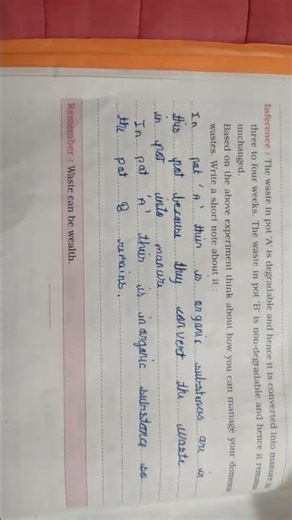 Inference : The waste in pot 'A' is degradable and hence it is converted into manure in
three to four weeks. The waste in pot 'B' is non-degradable and hence it remains
unchanged.
Based on the above experiment think about how you can manage your domestic
wastes. Write a short note about it :
In pot 'A' thir is organic substences are is
this pot because they convert the waste
in pot into manure.
In pot 'A' thir is in organic substence so
the pot B remains.
Remember : Waste can be wealth.